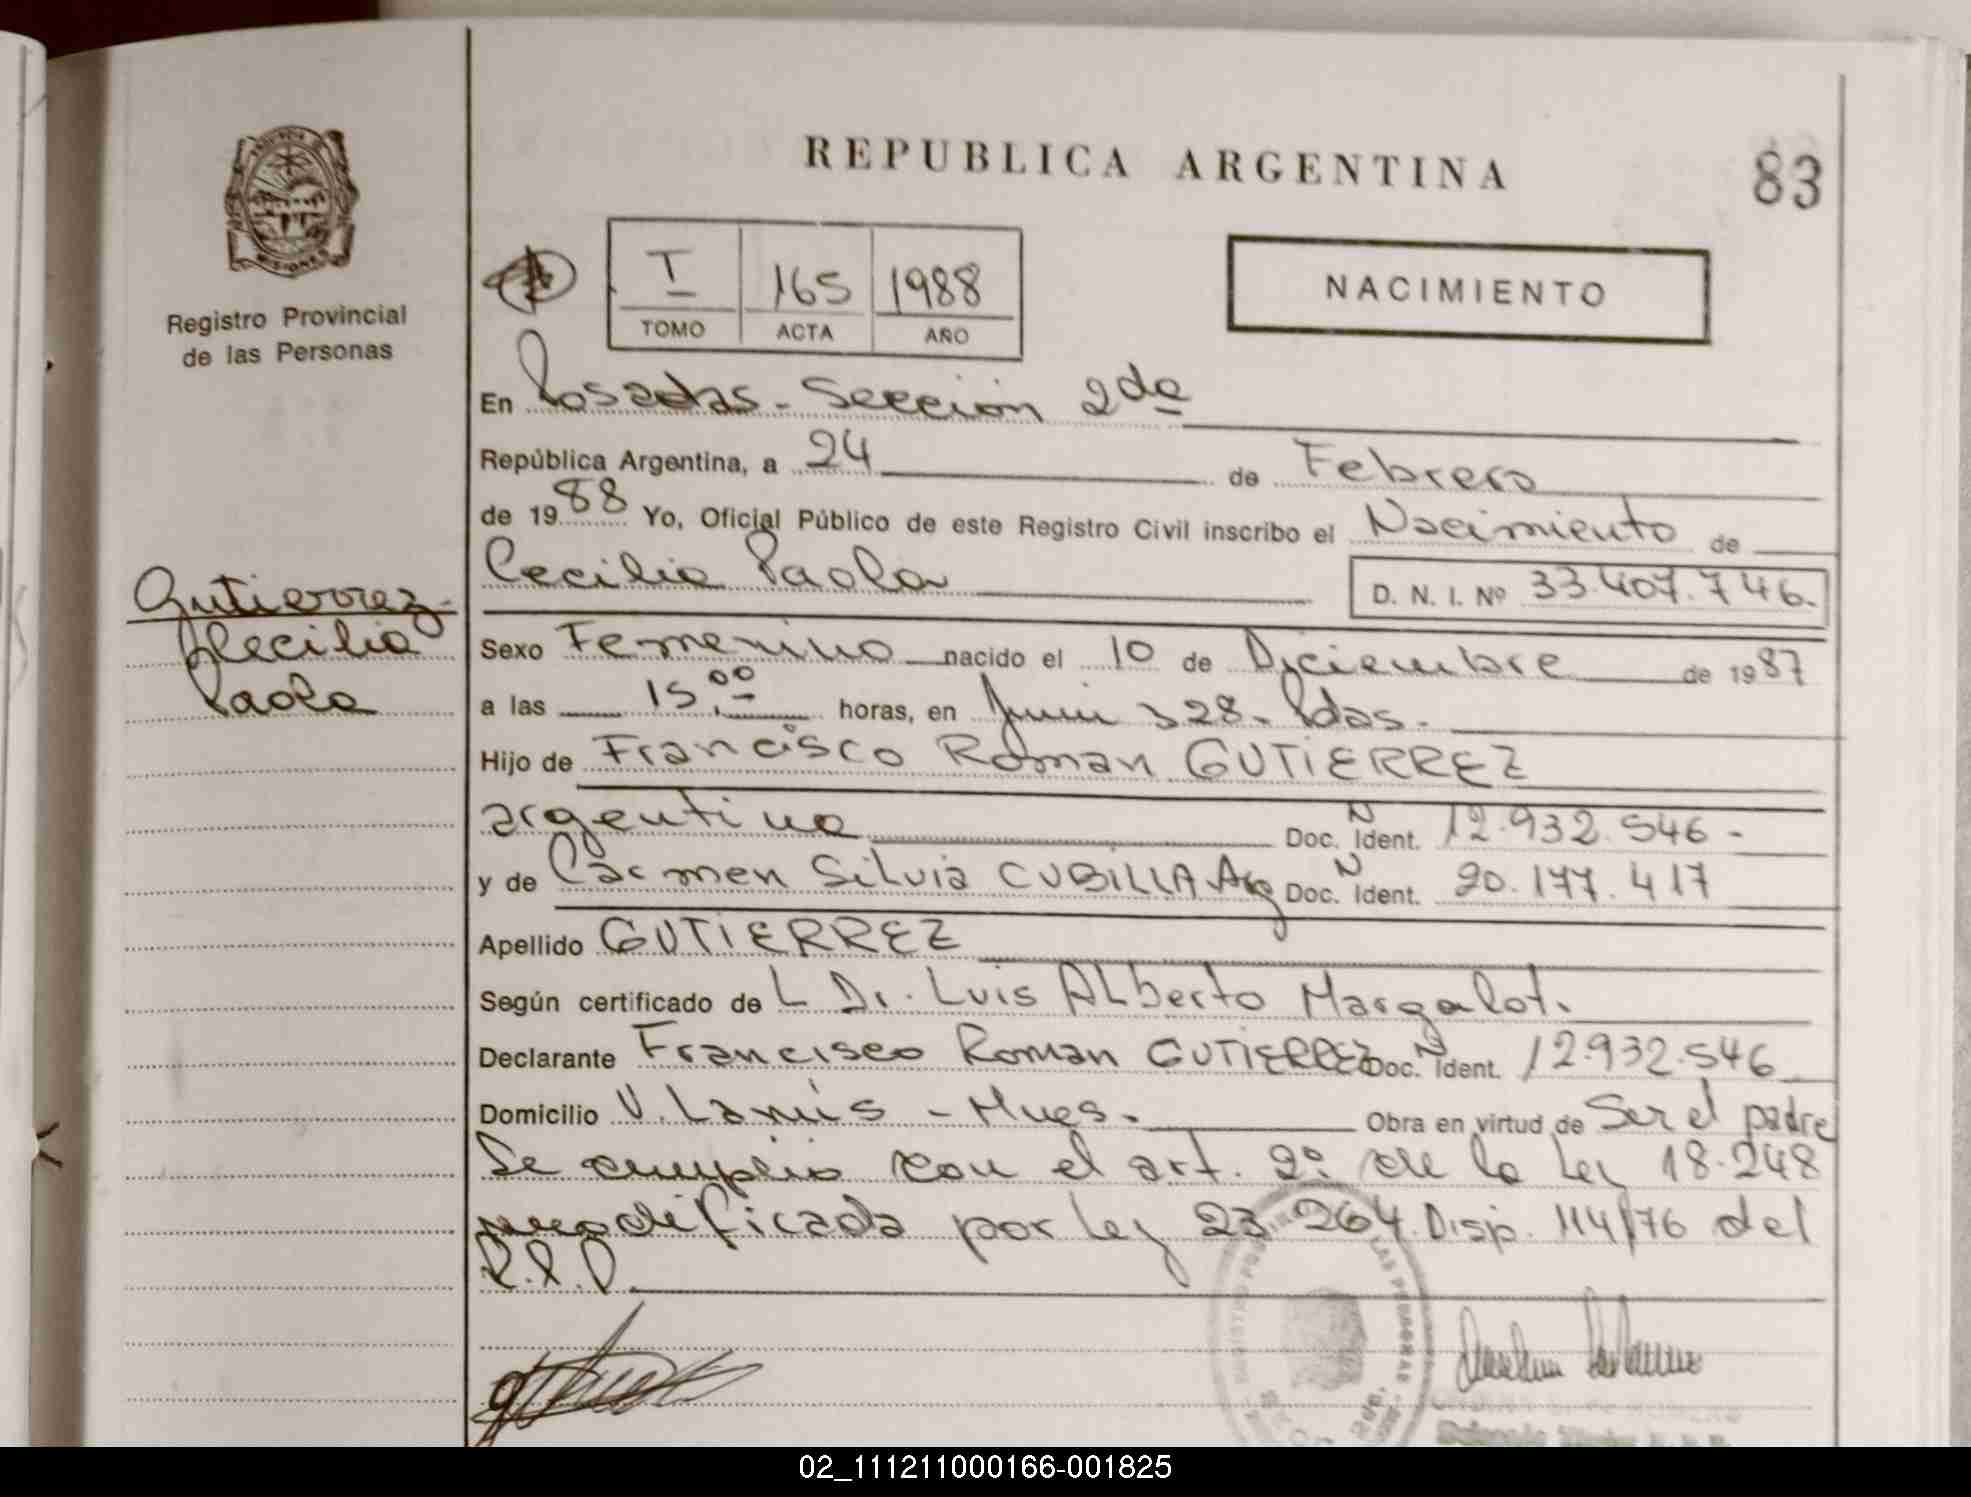 REPUBLICA ARGENTINA
83
PROVINCIA DE
MISIONES
Registro Provincial
de las Personas
I 165 1988
TOMO ACTA AÑO
NACIMIENTO
En Posadas - Sección 2da
República Argentina, a 24 de Febrero
de 1988 Yo, Oficial Público de este Registro Civil inscribo el Nacimiento de
Cecilia Paola D. N. I. Nº 33.407.746.
Gutierrez
Cecilia
Paola
Sexo Femenino nacido el 10 de Diciembre de 1987
a las 15,00 horas, en Junin 328 - Pdas.
Hijo de Francisco Roman GUTIERREZ
argentino Doc. N Ident. 12.932.546 -
y de Carmen Silvia CUBILLA Arg Doc. N Ident. 20.177.417
Apellido GUTIERREZ
Según certificado de L Dr. Luis Alberto Margalot.
Declarante Francisco Roman GUTIERREZ Doc. N Ident. 12.932.546
Domicilio V. Lanús - Mnes. Obra en virtud de Ser el padre
Se cumplio con el art. 2º de la Ley 18.248
modificada por ley 23.264. Disp. 114/76 del
R.P.P.
02_111211000166-001825